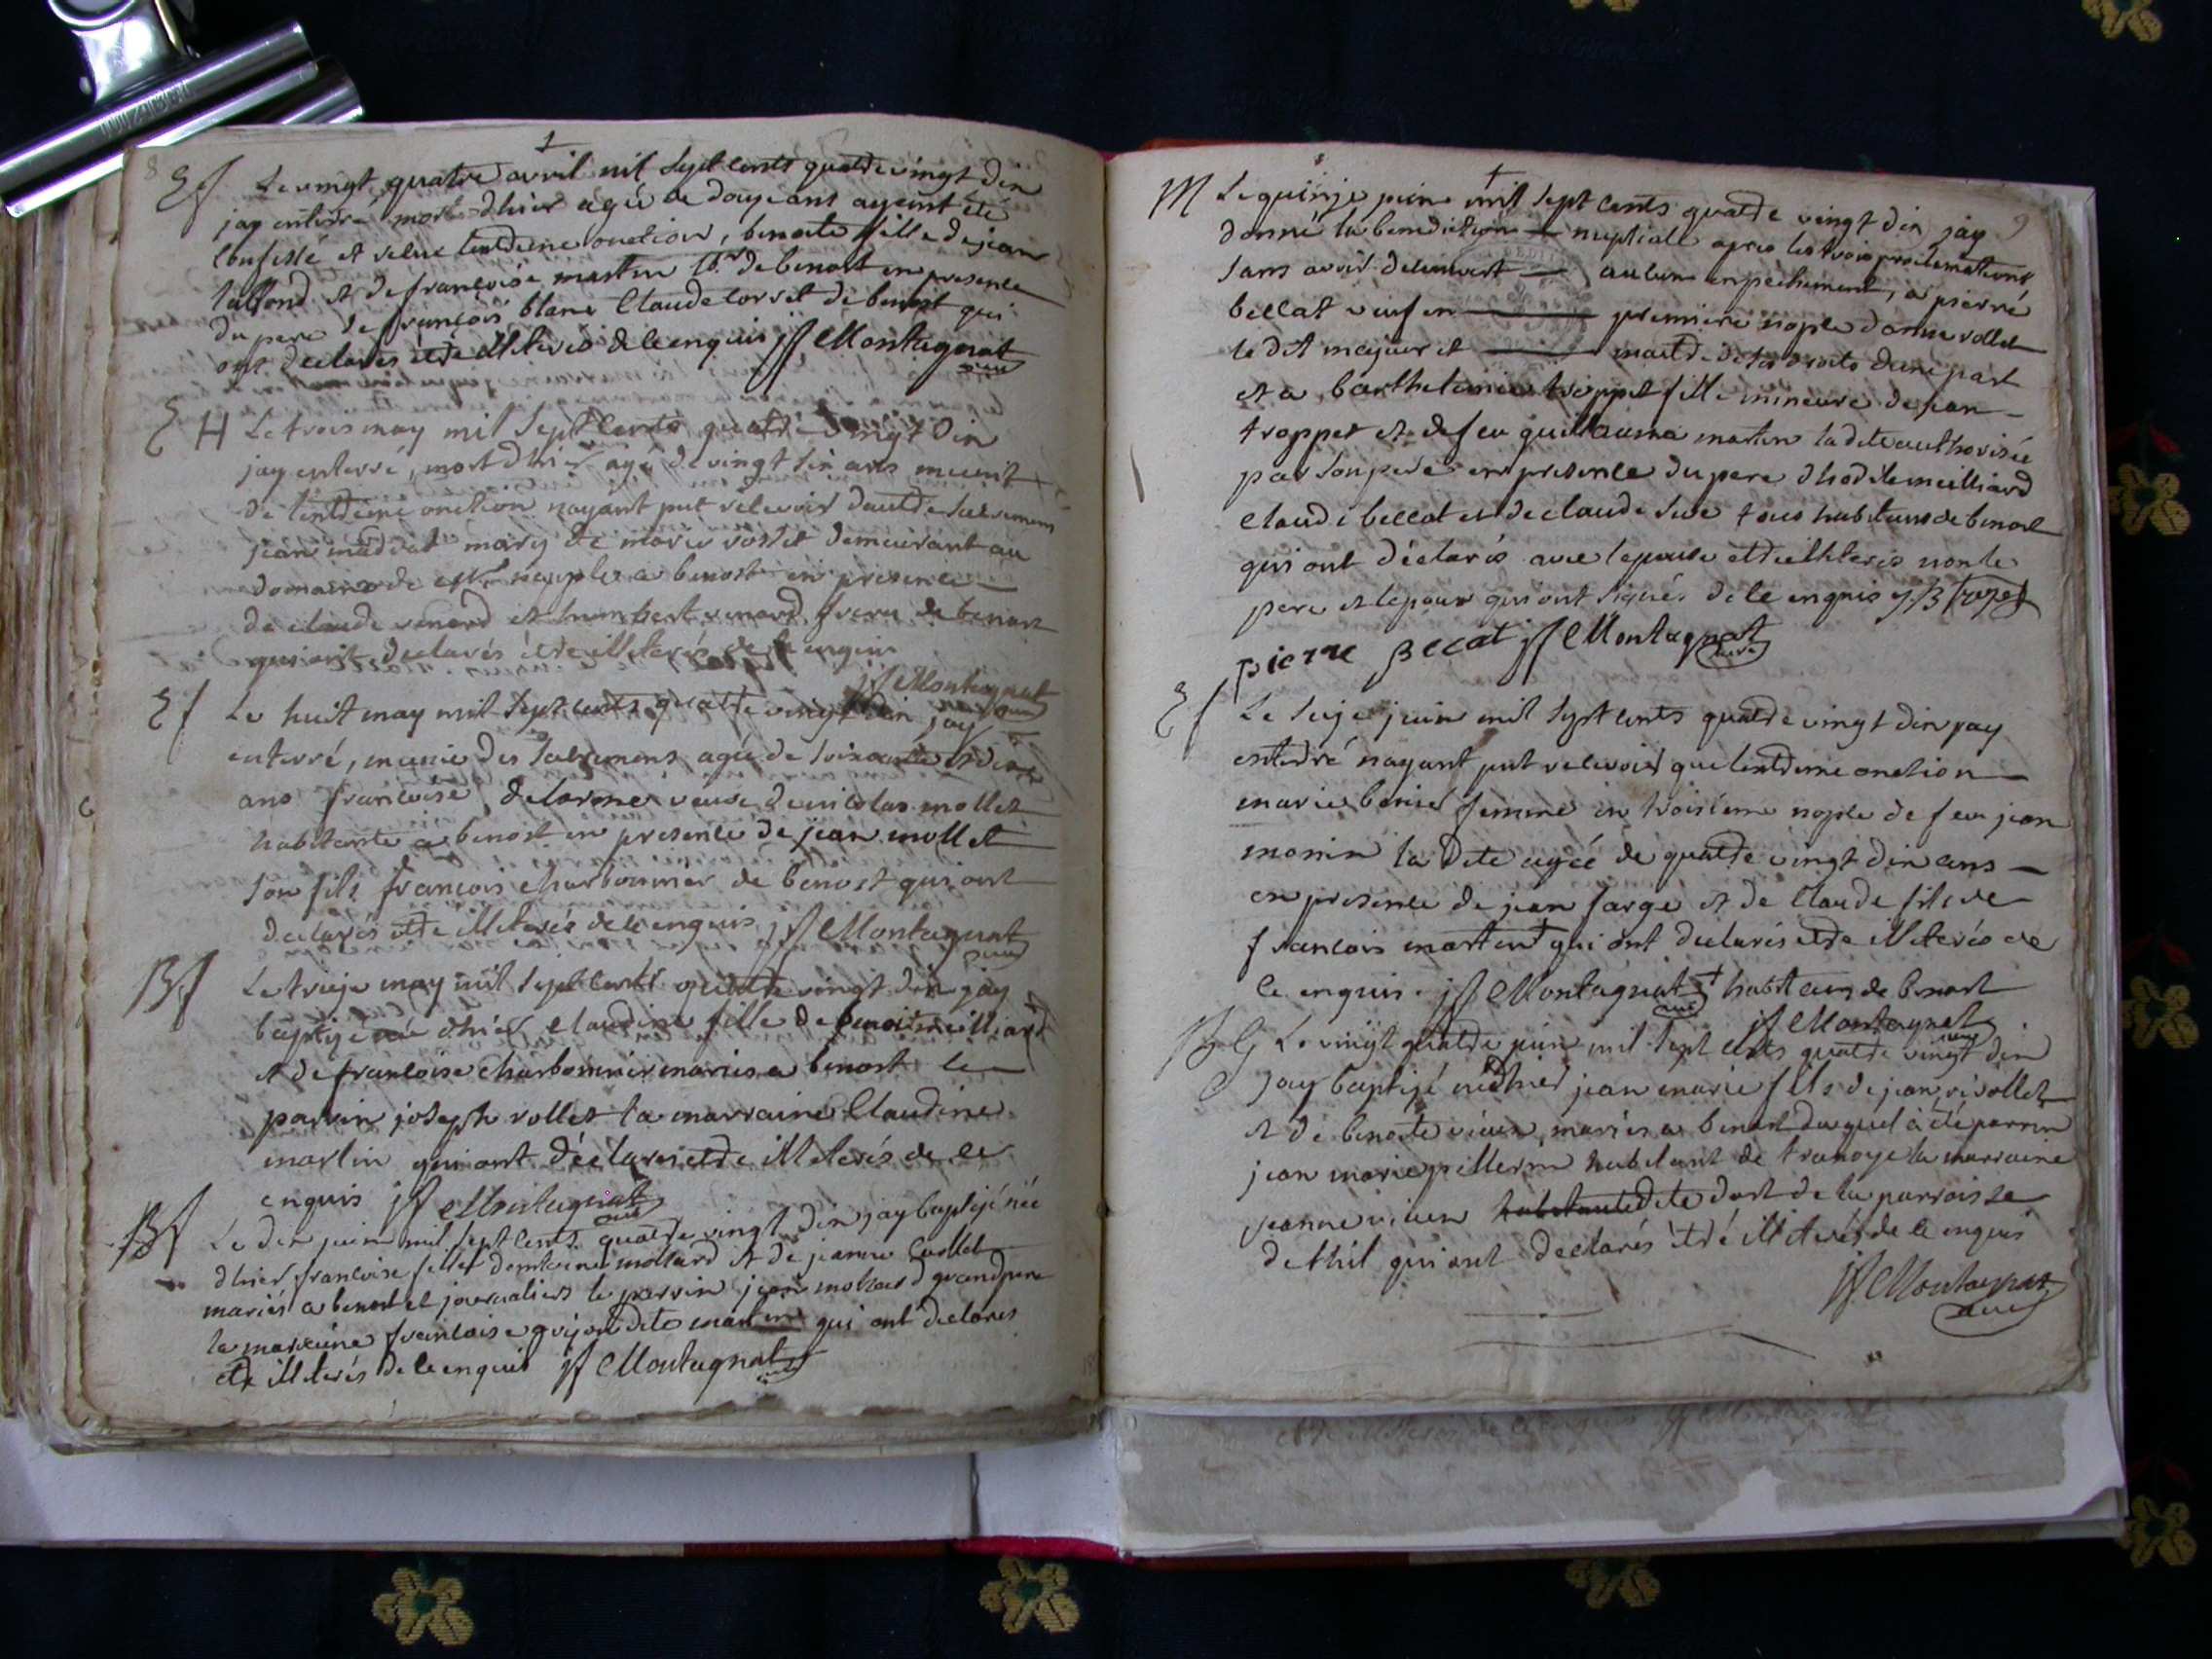 8
Ef Le vingt quatre avril mil sept cents quatre vingt dix
jay enterré mort dhier agée de douze ans ayent été
confessé et relue lextreme onction, benoite fille de jean
et de françoise martin de benost en presence
du pere de françois blanc Claude corret de benost qui
ont declarés etre illiterés de ce enquis jf Montagnat
curé
E H Le trois may mil sept cents quatre vingt dix
jay enterré, mort dhier agé de vingt six ans meunit
de lextreme onction nayant put relevoir dautre sacremens
jean mary de marie rostet demeurant au
domaine de a benost en presence
de claude venard et humbert venard frere de benost
qui ont declarés etre illiterés de ce enquis
jf Montagnat
curé
Ef Le huit may mil sept cents quatre vingt dix jay
enterré, munie des sacremens, agée de soixante et dix
ans françoise delorme veuve de nicolas mollet
habitante a benost en presence de jean mollet
son fils françois charbonnier de benost qui ont
declarés etre illiterés de ce enquis jf Montagnat
curé
Bf Le treize may mil sept cents quatre vingt dix jay
baptizé née dhier claudine fille de benoit meilliard
et de françoise charbonnier mariés a benost le
parrin joseph rollet la marraine Claudine
martin qui ont déclarés etre illiterés de ce
enquis jf Montagnat
curé
Bf Le dix juin mil sept cents quatre vingt dix jay baptizé née
dhier françoise fille dantoine mollard et de jeanne collet
mariés a benost et journaliers le parrin jean mollard grandpere
la marraine françoise grijon dite martin qui ont declarés
etre illiterés de ce enquis jf Montagnat
curé
9
M Le quinze juin mil sept cents quatre vingt dix jay
donné la benediction nuptiale apres les trois proclemations
sans avoir decouvert aucun enpechement, a pierre
bellat veuf en premiere nople danne rollet
le dit majeur et maitre de ses droits dune part
et a barthelemie troppet fille mineure de jean
troppet et de feu guillauma martin la dite authorisée
par son pere en presence du pere dhodile meilliard
claude bellat et de claude sive tous habitans de benost
qui ont déclarés avec lepouse etre illiterés non le
pere et lepoux qui ont signés de ce enquis j,B tropet
pierre Becat jf Montagnat
curé
Ef Le seize juin mil sept cents quatre vingt dix jay
enterré nayant put relevoir que lextreme onction
marie benier femme en troisieme nople de feu jean
monin la dite agée de quatre vingt dix ans
en presence de jean farge et de Claude fils de
françois martin + qui ont declarés etre illiterés de
ce enquis. jf Montagnat + habitans de benost
curé jf Montagnat
curé
B G Le vingt quatre juin mil sept cents quatre vingt dix
jay baptizé né dhier jean marie fils de jean rivollet
et de benoite vieux mariés a benost duquel à été parrin
jean marie pillerin habitant de tramoye la marraine
jeanne vieux habitante dite dort de la parroisse
de thil qui ont declarés etre illiterés de ce enquis
jf Montagnat
curé